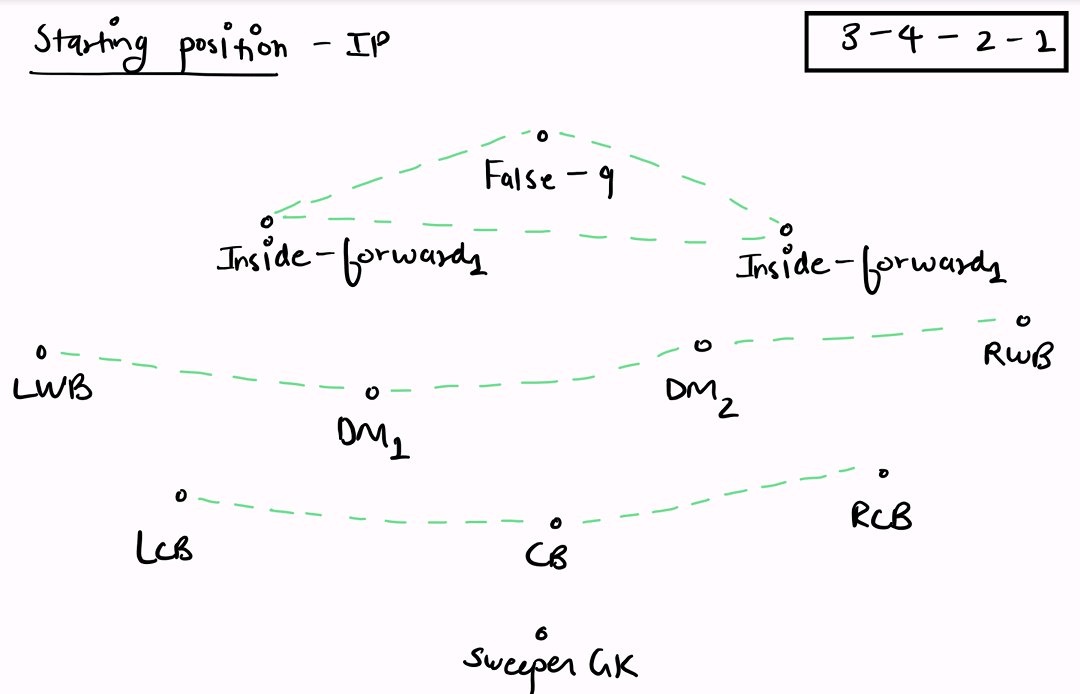 Starting position - IP
3-4-2-1
False-9
Inside-forward1
Inside-forward1
LWB
DM2
RWB
DM1
LCB
CB
RCB
Sweeper GK